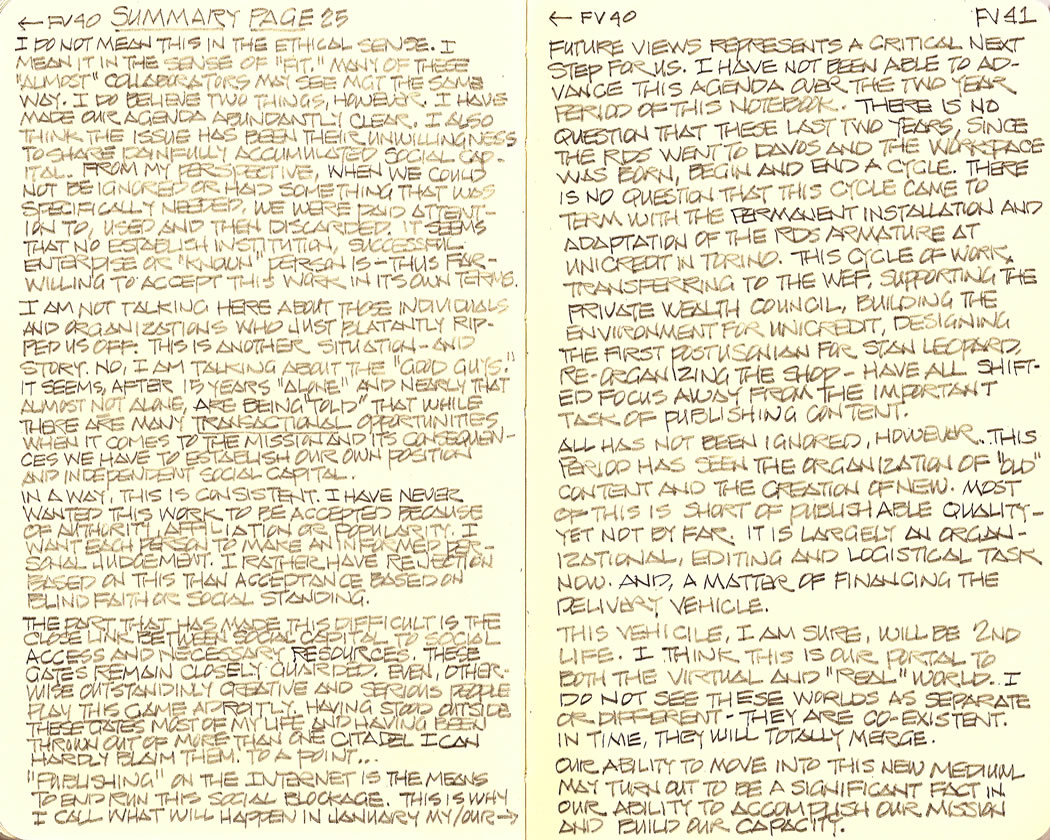 ← FV40 SUMMARY PAGE 25
I DO NOT MEAN THIS IN THE ETHICAL SENSE. I
MEAN IT IN THE SENSE OF "FIT." MANY OF THESE
"ALMOST" COLLABORATORS MAY SEE MGT THE SAME
WAY. I DO BELIEVE TWO THINGS, HOWEVER. I HAVE
MADE OUR AGENDA ABUNDANTLY CLEAR. I ALSO
THINK THE ISSUE HAS BEEN THEIR UNWILLINGNESS
TO SHARE PAINFULLY ACCUMULATED SOCIAL CAP-
ITAL. FROM MY PERSPECTIVE, WHEN WE COULD
NOT BE IGNORED OR HAD SOMETHING THAT WAS
SPECIFICALLY NEEDED, WE WERE PAID ATTENT-
ION TO, USED AND THEN DISCARDED. IT SEEMS
THAT NO ESTABLISH INSTITUTION, SUCCESSFUL
ENTERPISE OR "KNOWN" PERSON IS - THUS FAR -
WILLING TO ACCEPT THIS WORK IN ITS OWN TERMS.
I AM NOT TALKING HERE ABOUT THOSE INDIVIDUALS
AND ORGANIZATIONS WHO JUST BLATANTLY RIP-
PED US OFF. THIS IS ANOTHER SITUATION - AND
STORY. NO, I AM TALKING ABOUT THE "GOOD GUYS."
IT SEEMS, AFTER 15 YEARS "ALONE" AND NEARLY THAT
ALMOST NOT ALONE, ARE BEING "TOLD" THAT WHILE
THERE ARE MANY TRANSACTIONAL OPPORTUNITIES
WHEN IT COMES TO THE MISSION AND ITS CONSEQUEN-
CES WE HAVE TO ESTABLISH OUR OWN POSITION
AND INDEPENDENT SOCIAL CAPITAL.
IN A WAY, THIS IS CONSISTENT. I HAVE NEVER
WANTED THIS WORK TO BE ACCEPTED BECAUSE
OF AUTHORITY, AFFILIATION OR POPULARITY. I
WANT EACH PERSON TO MAKE AN INFORMED PER-
SONAL JUDGEMENT. I RATHER HAVE REJECTION
BASED ON THIS THAN ACCEPTANCE BASED ON
BLIND FAITH OR SOCIAL STANDING.
THE PART THAT HAS MADE THIS DIFFICULT IS THE
CLOSE LINK BETWEEN SOCIAL CAPITAL TO SOCIAL
ACCESS AND NECESSARY RESOURCES. THESE
GATES REMAIN CLOSELY GUARDED. EVEN, OTHER-
WISE OUTSTANDINLY CREATIVE AND SERIOUS PEOPLE
PLAY THIS GAME ADROITLY. HAVING STOOD OUTSIDE
THESE GATES MOST OF MY LIFE AND HAVING BEEN
THROWN OUT OF MORE THAN ONE CITADEL I CAN
HARDLY BLAIM THEM. TO A POINT...
"PUBLISHING" ON THE INTERNET IS THE MEANS
TO END RUN THIS SOCIAL BLOCKAGE. THIS IS WHY
I CALL WHAT WILL HAPPEN IN JANUARY MY/OUR →
← FV40 FV41
FUTURE VIEWS REPRESENTS A CRITICAL NEXT
STEP FOR US. I HAVE NOT BEEN ABLE TO AD-
VANCE THIS AGENDA OVER THE TWO YEAR
PERIOD OF THIS NOTEBOOK. THERE IS NO
QUESTION THAT THESE LAST TWO YEARS, SINCE
THE RDS WENT TO DAVOS AND THE WORKSPACE
WAS BORN, BEGIN AND END A CYCLE. THERE
IS NO QUESTION THAT THIS CYCLE CAME TO
TERM WITH THE PERMANENT INSTALLATION AND
ADAPTATION OF THE RDS ARMATURE AT
UNICREDIT IN TORINO. THIS CYCLE OF WORK,
TRANSFERRING TO THE WEF, SUPPORTING THE
PRIVATE WEALTH COUNCIL, BUILDING THE
ENVIRONMENT FOR UNICREDIT, DESIGNING
THE FIRST POSTUSONIAN FOR STAN LEOPARD,
RE-ORGANIZING THE SHOP - HAVE ALL SHIFT-
ED FOCUS AWAY FROM THE IMPORTANT
TASK OF PUBLISHING CONTENT.
ALL HAS NOT BEEN IGNORED, HOWEVER. THIS
PERIOD HAS SEEN THE ORGANIZATION OF "OLD"
CONTENT AND THE CREATION OF NEW. MOST
OF THIS IS SHORT OF PUBLISHABLE QUALITY -
YET NOT BY FAR. IT IS LARGELY AN ORGAN-
IZATIONAL, EDITING AND LOGISTICAL TASK
NOW. AND, A MATTER OF FINANCING THE
DELIVERY VEHICLE.
THIS VEHICILE, I AM SURE, WILL BE 2ND
LIFE. I THINK THIS IS OUR PORTAL TO
BOTH THE VIRTUAL AND "REAL" WORLD. I
DO NOT SEE THESE WORLDS AS SEPARATE
OR DIFFERENT - THEY ARE CO-EXISTENT.
IN TIME, THEY WILL TOTALLY MERGE.
OUR ABILITY TO MOVE INTO THIS NEW MEDIUM
MAY TURN OUT TO BE A SIGNIFICANT FACT IN
OUR ABILITY TO ACCOMPLISH OUR MISSION
AND BUILD OUR CAPACITY.